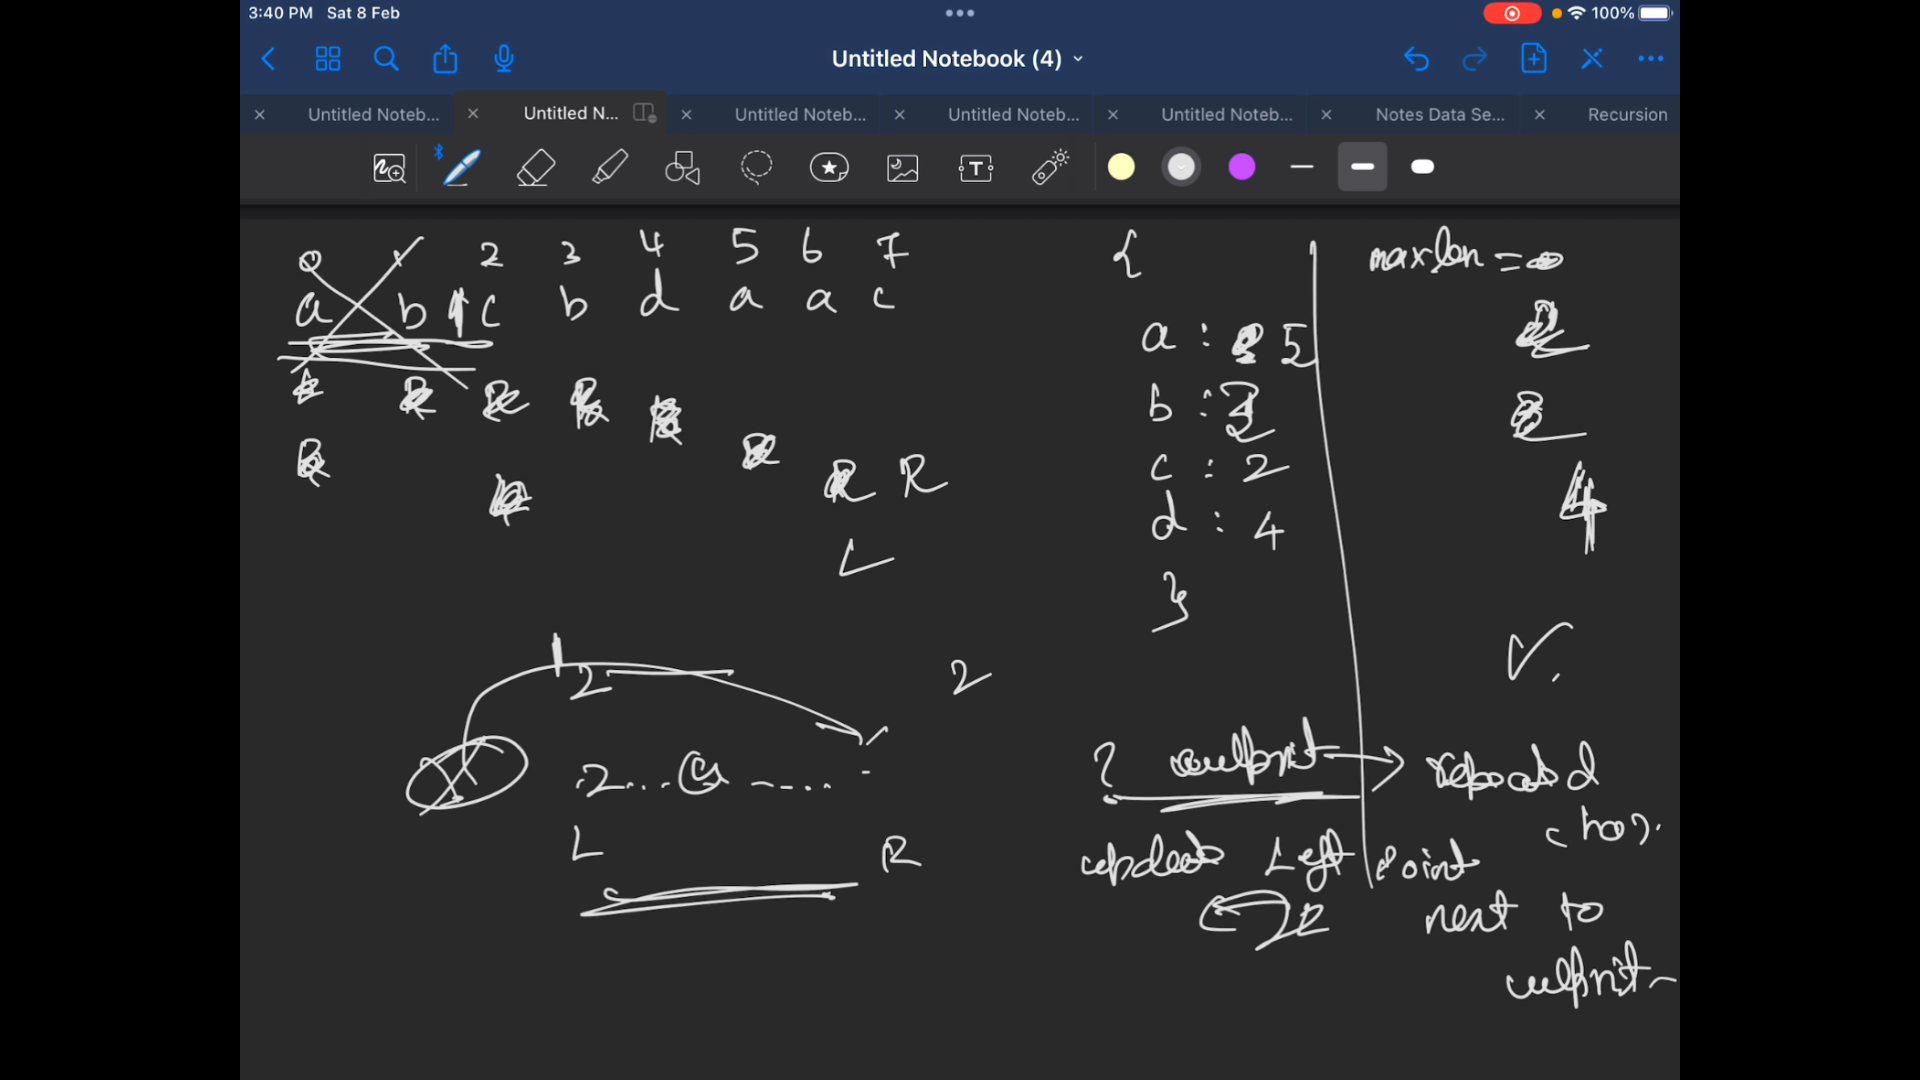 3:40 PM Sat 8 Feb
100%
Untitled Notebook (4)
Untitled Noteb...
Untitled N...
Untitled Noteb...
Untitled Noteb...
Untitled Noteb...
Notes Data Se...
Recursion
0 1 2 3 4 5 6 7
a b c b d a a c
R R
L
{
a : 5
b :
c : 2
d : 4
}
maxlen =
4
2
2
2...a.....
L R
? culprit → repeated
char.
update Left point
next to
culprit